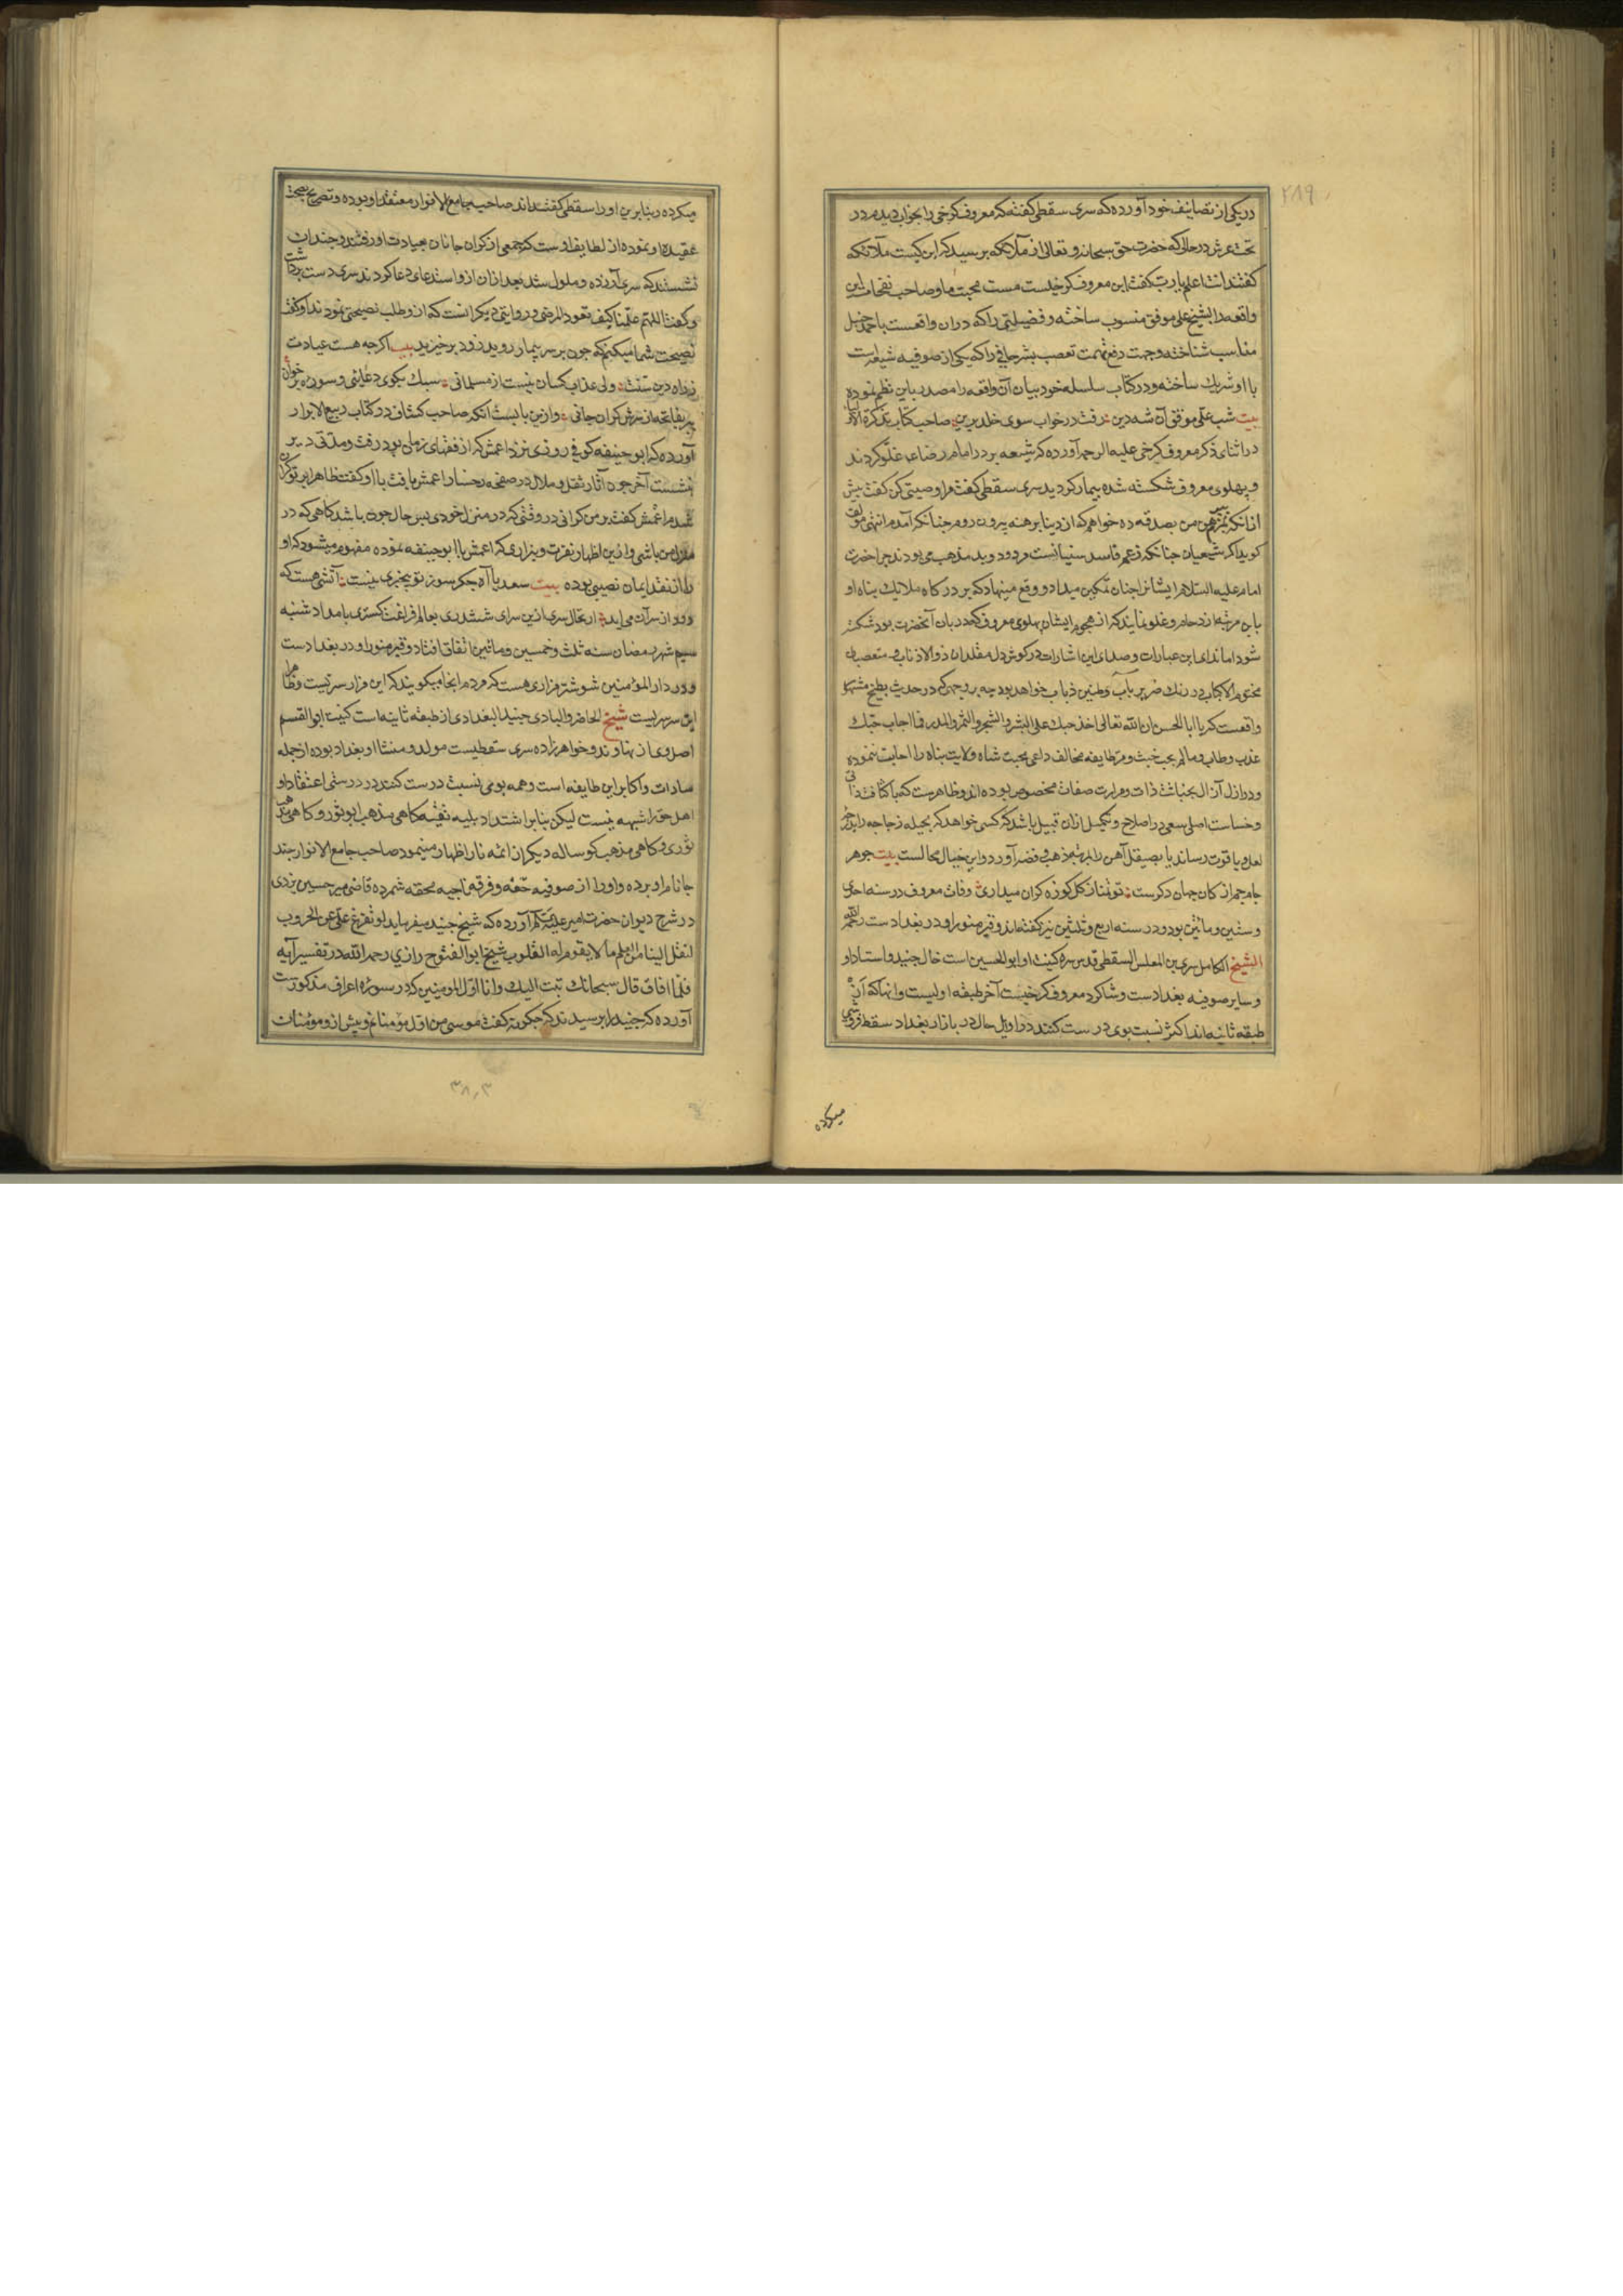 در یکی از تصانیف خود آورده که سری سقطی گفته که معروف کرخی را بخواب دیدم در
تحت عرش در حالی که حضرت حق سبحانه و تعالی از ملائکه پرسید که این کیست ملائکه
گفتند انت اعلم یا رب گفت این معروف کرخیست مست محبت ما و صاحب نفحات این
واقعه را بشیخ علی موفق منسوب ساخته و فضیلتی را که در ان واقعست باحمد حنبل
مناسب شناخته و جهت رفع تهمت تعصب بشر حافی را که یکی از صوفیه شیعه است
با او شریک ساخته و در کتاب سلسله خود بیان آن واقعه را مصدر باین نظم نموده
بیت شب علی موفق آن شه دین رفت در خواب سوی خلد برین صاحب کتاب تذکرة الاولیا
در اثنای ذکر معروف کرخی علیه الرحمه آورده که شیعه بر در امام رضا ع غلو کردند
و پهلوی معروف شکسته شده بیمار کردید سری سقطی گفت مرا وصیتی کن گفت پیش
از انکه بمیرم پیرهن من بصدقه ده خواهم که از دنیا برهنه بیرون روم چنانکه آمدم انتهی مولف
کوید اکر شیعیان چنانکه زعم فاسد سنیانست مردود و بد مذهب می بودند چرا حضرت
امام علیه السلام ایشانرا چنان تمکین میداد و وقع مینهاد که بر در کاه ملایک پناه او
باین مرتبه ازدحام و غلو نمایند که از هجوم ایشان پهلوی معروف که دربان آنحضرت بود شکسته
شود اما ندای این عبارات و صدای این اشارات در کوش دل مقلدان ذوالاذناب و متعصبان
مختوم الالباب در رنک ضریر باب و طنین ذباب خواهد بود چه بر وجهی که در حدیث بطیخ مشهور
واقعست که یا ابا الحسن ان الله تعالی اخذ حبک علی البشر و الشجر و الثمر و المدر فما اجاب حبک
عذب و طاب و ما لم یجب خبث و مر طایفه مخالف داعی محبت شاه ولایت پناه را اجابت ننموده
و در ازل آزال بخباثت ذات و مرارت صفات مخصوص بوده اند و ظاهرست که با کثافت ذاتی
و خساست اصلی سعی در اصلاح و تکمیل از ان قبیل باشد که کسی خواهد که بحیله زجاجه را بدرجه
لعل و یاقوت رساند یا بصیقل آهن را بمرتبه ذهب و فضه آورد و این خیال محالست بیت جوهر
جام جم از کان جهان دکرست تو تمنا ز کل کوزه کران میداری وفات معروف در سنه احدی
و ستین و مأتین بوده و در سنه اربع و ثلثین نیز کفته اند و قبر منور او در بغداد است رحمه الله
الشیخ الکامل سری بن المعلس السقطی قدس سره کنیت او ابو الحسین است خال جنید و استاد او
و سایر صوفیه بغداد است و شاکرد معروف کرخیست آخر طبقه اولیست و انها که از
طبقه ثانیه اند اکثر نسبت بوی درست کنند در اوایل حال در بازار بغداد سقط فروشی
میکرده
میکرده و بنا برین او را سقطی گفته اند صاحب جامع الانوار معتقد او بوده و تصریح بصحت
عقیده او نموده از لطایف اوست که جمعی از کران جانان بعیادت او رفتند و چندان
نشستند که سری آزرده و ملول شد بعد ازان ازو استدعای دعا کردند سری دست برداشت
و کفت اللهم علمنا کیف نعود المرضی و روایتی دیکر انست که ازو طلب نصیحتی نمودند او کفت
نصیحت شما میکنم که چون بر سر بیمار روید زود برخیزید بیت اکرچه هست عیادت
ز راه دین سنت ولی عذاب کسان نیست از مسلمانی سبک بکوی دعایی و سوره برخوان
بفاتحه از سرش کران جانی و ازین بابست انکه صاحب کشاف در کتاب ربیع الابرار
آورده که ابو حنیفه کوفی روزی نزد اعمش که از فقهای زمان بود رفت و مدتی دیر
نشست آخر چون آثار ثقل و ملال در صفحه رخسار اعمش یافت با او کفت ظاهرا بر تو کران
شدم اعمش کفت بر من کرانی در وقتی که در منزل خودی پس حال چون باشد کاهی که در
منزل من باشی و ازین اظهار نفرت و بیزاری که اعمش با ابو حنیفه نموده مفهوم میشود که او
را از نقد ایمان نصیبی بوده بیت سعدیا آه جکر سوز تو بیخبری نیست آتشی هست که
دود از سر آن می اید ارتحال سری ازین سرای ششدری بعالم فراغت کستری بامداد شنبه
سیم شهر رمضان سنه ثلث و خمسین و مأتین اتفاق افتاد و قبر منور او در بغداد است
و در دار المؤمنین شوشتر مزاری هست که مردم انجا میکویند که این مزار سریست و ظاهرا
این سر سریست شیخ الحاضر و البادی جنید البغدادی از طبقه ثانیه است کنیت ابو القسم
اصل وی از نهاوند و خواهرزاده سری سقطیست مولد و منشا او بغداد بوده از جمله
سادات و اکابر این طایفه است و همه بوی نسبت درست کنند در درستی اعتقاد او
اهل حق را شبهه نیست لیکن بنابر اشتداد بلیه تقیه کاهی بمذهب ابو ثور و کاهی مذهب
ثوری و کاهی مذهب کوساله دیکر از ائمه نار اظهار مینمود صاحب جامع الانوار چند
جا نام او برده و او را از صوفیه حقه و فرقه ناجیه محقه شمرده قاضی میر حسین یزدی
در شرح دیوان حضرت امیر علیه السلام آورده که شیخ جنید میفرماید لو تفرغ علی عن الحروب
لنقل الینا من العلم ما لا یقوم له القلوب شیخ ابو الفتوح رازی رحمه الله در تفسیر آیه
فلما افاق قال سبحانک تبت الیک و انا اول المومنین که در سوره اعراف مذکورست
آورده که جنید را پرسیدند که چکونه کفت موسی من اول مؤمنانم و پیش ازو مؤمنان
۳۸۰۳
۲۱۹